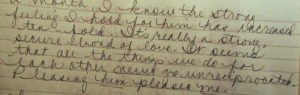 a month. I know the strong
feeling I hold for him has increased
ten fold. Its really a strong,
secure bond of love. It seems
that all the things we do for
each other never go unreciprocated.
Pleasing him pleases me.